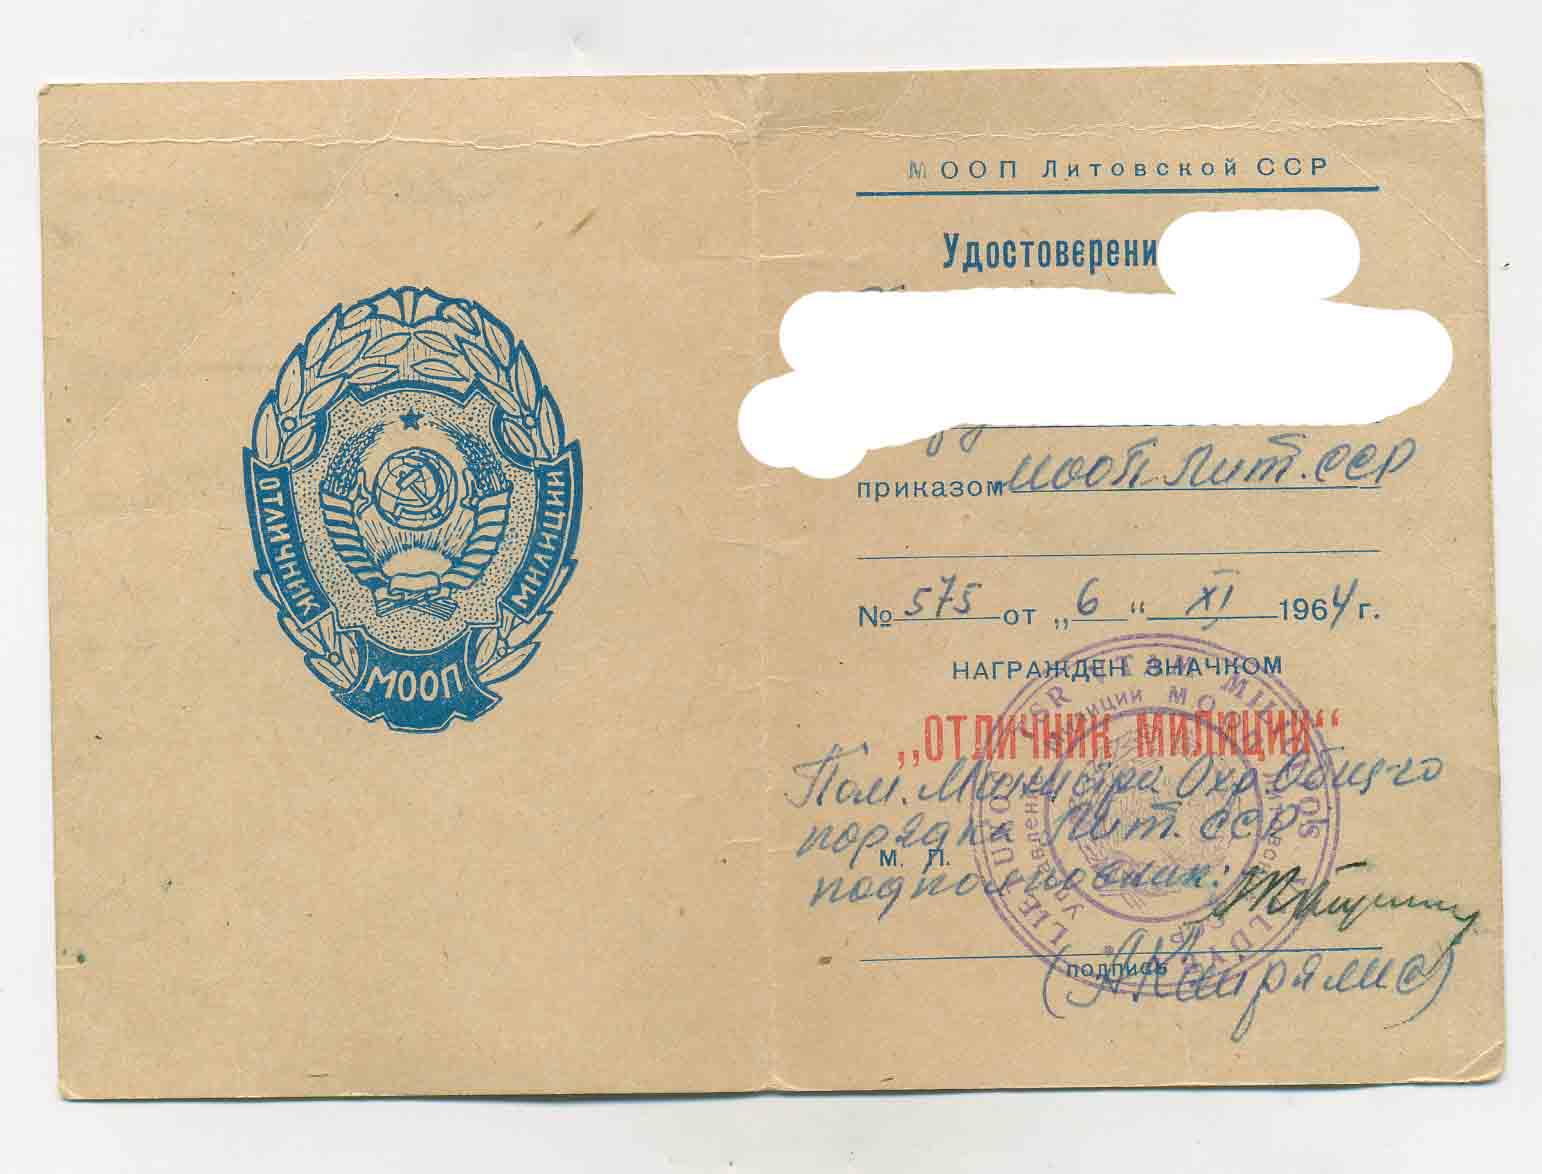 ОТЛИЧНИК
МИЛИЦИИ
МООП
МООП Литовской ССР
Удостоверени
приказом МООП Лит. ССР
№ 575 от „6“ XI 1964 г.
НАГРАЖДЕН ЗНАЧКОМ
„ОТЛИЧНИК МИЛИЦИИ“
Пом. Министра Охр. Общ-го
порядка Лит. ССР
М. П.
подполковник:
подпись